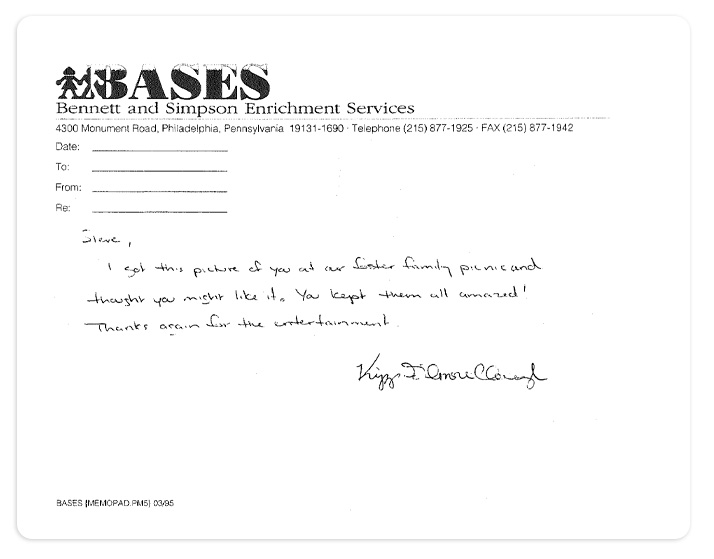 BASES
Bennett and Simpson Enrichment Services
4300 Monument Road, Philadelphia, Pennsylvania 19131-1690 · Telephone (215) 877-1925 · FAX (215) 877-1942
Date:
To:
From:
Re:
Steve,
I got this picture of you at our foster family picnic and
thought you might like it. You kept them all amazed!
Thanks again for the entertainment.
BASES {MEMOPAD.PM5} 03/95